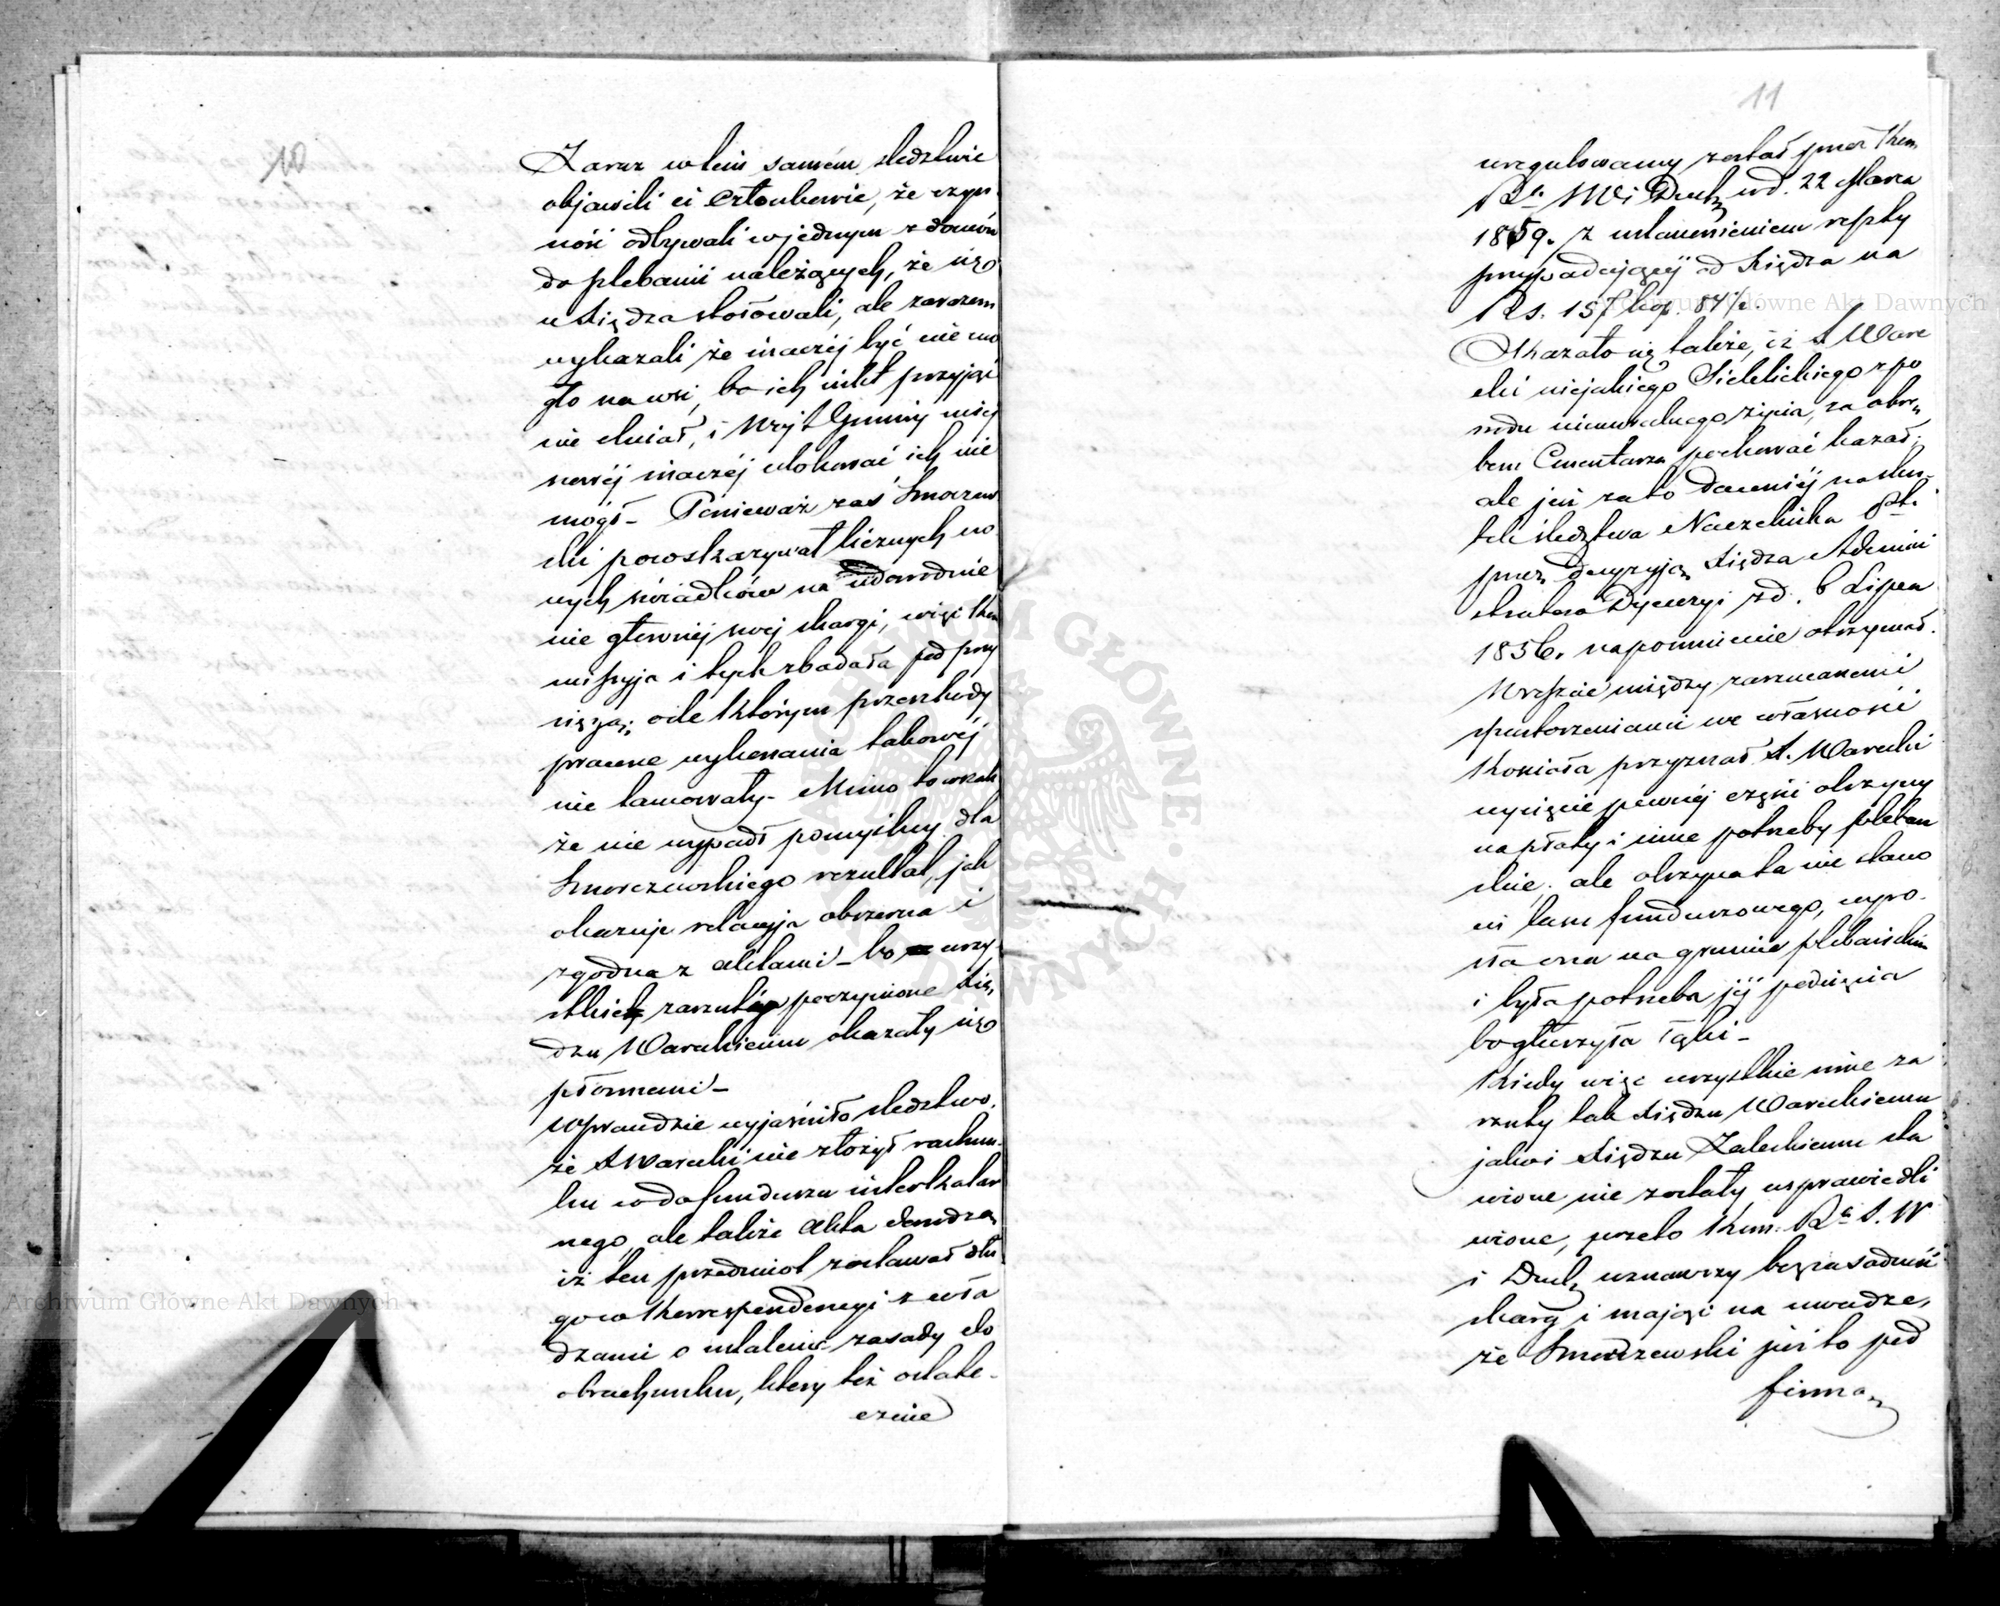 10
Zaraz w tém samém śledztwie
objawili ci Członkowie, że czyn
ność odbywali w jednym z domów
do plebanii należących, że się
u Księdza stołowali, ale zarazem
wykazali że inaczéj być nie mo
gło na wsi, bo ich nikt przyjąć
nie chciał, i Wójt Gminy miej
scowéj inaczéj ulokować ich nie
mógł – Ponieważ zaś Smorzew
ski powskazywał licznych no
wych świadków na udowodnie
nie głównéj swéj skargi, więc Kom
missyja i tych zbadała pod przy
sięgą; o ile którym przeszkody
prawne wykonania takowéj
nie tamowały – Mimo to wszak
że nie wypadł pomyślny dla
Smorzewskiego rezultat, jak
okazuje relacyja obszerna i
zgodna z aktami – bo wszy
stkie zarzuty poczynione Xię,
dzu Wareckiemu okazały się
płonnemi –
Wprawdzie wyjaśniło śledztwo,
że X Warecki nie złożył rachun
ku do funduszu interkalar
nego, ale także Akta dowodzą
iż ten przedmiot zostawał dłu
go w Korrespondencyi z wła
dzami o ustalenie zasady do
obrachunku, który też ostate –
cznie
11
uregulowany został przez Kom.
Rz. S W i Duch. w d. 22 Marca
1859. z ustanowieniem reszty
przypadającéj od Księdza na
Rs. 157 kop. 84½.
Okazało się także, iż X Ware
cki niejakiego Siedlickiego z po
wodu niemoralnego życia, za obrę,
bem Cmentarza pochować kazał;
ale już za to dawniéj na sku
tek śledztwa Naczelnika Ptu
przez decyzyją Księdza Admini
stratora Dyecezyi z d. 6 Lipca
1856. napomnienie otrzymał.
Wreszcie między zarzucanemi
spustoszeniami we własności
Kościoła przyznał X. Warecki
wycięcie pewnéj części olszyny
na płoty i inne potrzeby pleban
skie, ale olszyna ta nie stano
wi lasu funduszowego, wyro
sła ona na gruncie plebańskim
i była potrzeba jéj podcięcia
bo głuszyła łąki –
Kiedy więc wszystkie inne za
rzuty tak Księdzu Wareckiemu
jako i Księdzu Zaleskiemu sta
wione nie zostały usprawiedli
wione, przeto Kom. Rz. S. W
i Duch. uznawszy bezzasadność
skarg i mając na uwadze,
że Smorzewski już to pod
firmą
Archiwum Główne Akt Dawnych
Archiwum Główne Akt Dawnych
ARCHIWUM GŁÓWNE AKT DAWNYCH